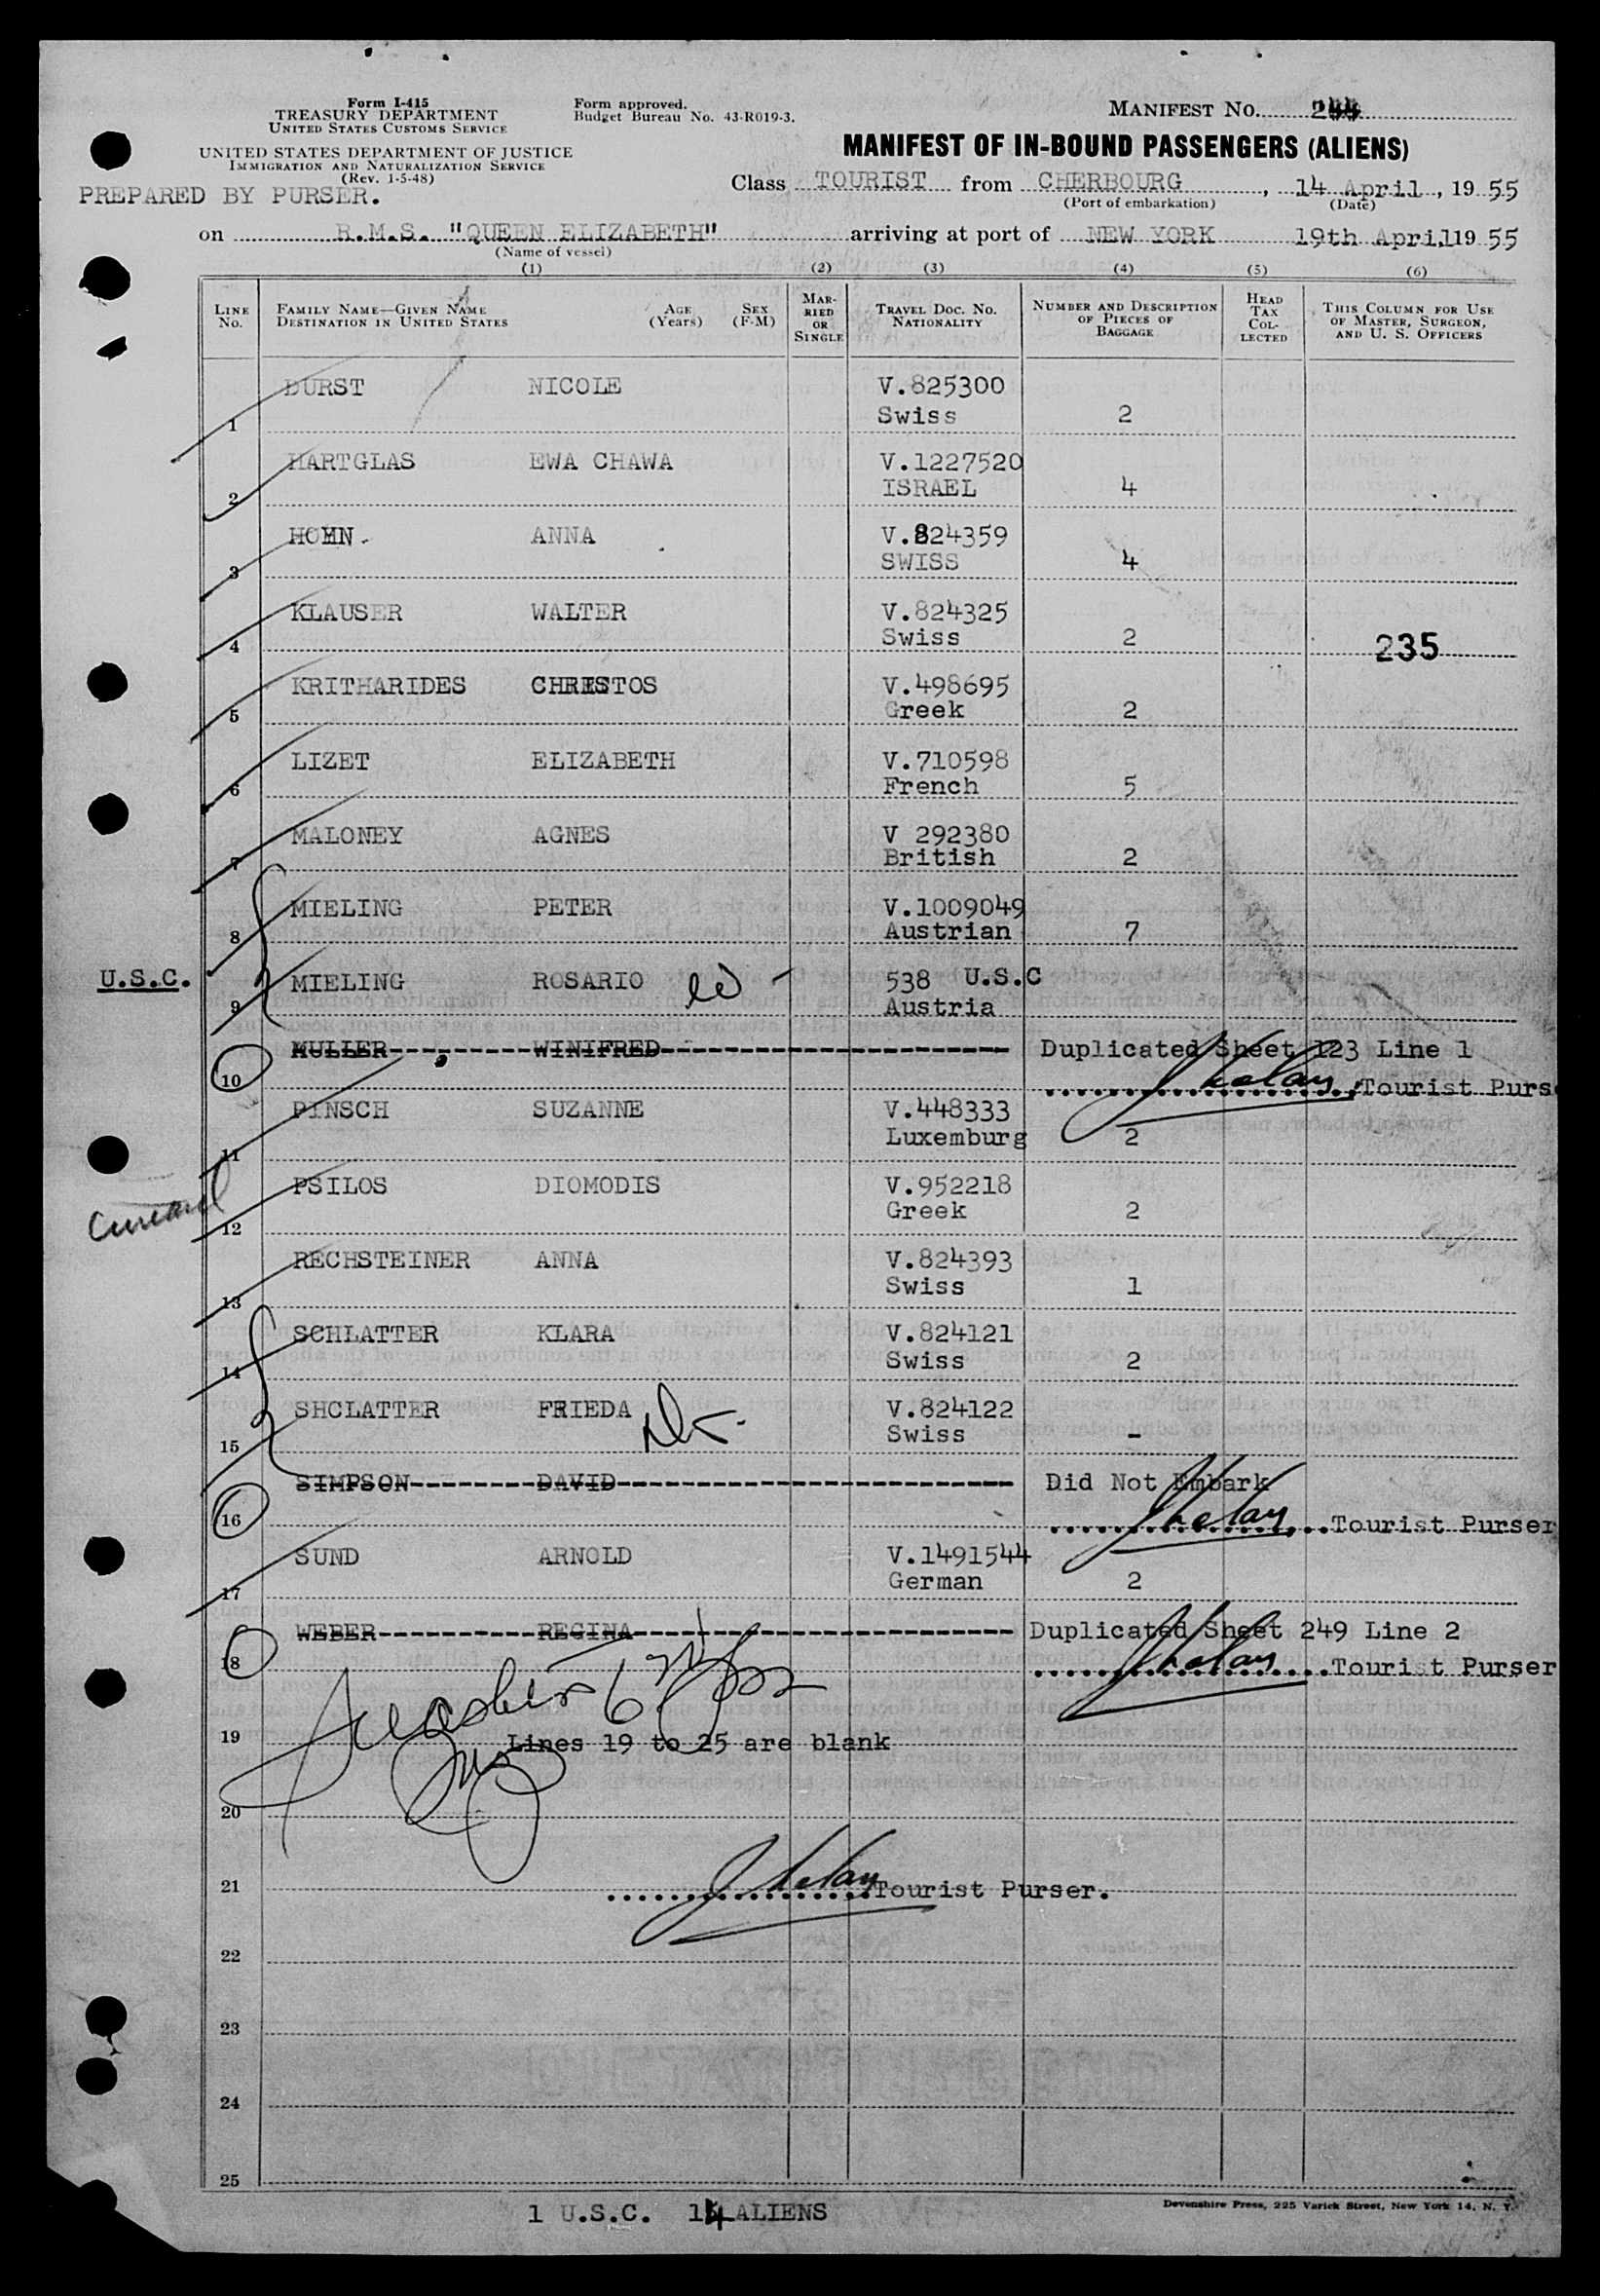 Form I-415
TREASURY DEPARTMENT
UNITED STATES CUSTOMS SERVICE
UNITED STATES DEPARTMENT OF JUSTICE
IMMIGRATION AND NATURALIZATION SERVICE
(Rev. 1-5-48)
PREPARED BY PURSER.
Form approved.
Budget Bureau No. 43-R019-3.
MANIFEST NO. 244
MANIFEST OF IN-BOUND PASSENGERS (ALIENS)
Class TOURIST from CHERBOURG, 14 April, 1955
(Port of embarkation) (Date)
on R.M.S. "QUEEN ELIZABETH" arriving at port of NEW YORK 19th April, 1955
(Name of vessel)
(1) (2) (3) (4) (5) (6)
LINE No. FAMILY NAME—GIVEN NAME DESTINATION IN UNITED STATES AGE (Years) SEX (F-M) MARRIED OR SINGLE TRAVEL DOC. NO. NATIONALITY NUMBER AND DESCRIPTION OF PIECES OF BAGGAGE HEAD TAX COLLECTED THIS COLUMN FOR USE OF MASTER, SURGEON, AND U. S. OFFICERS
DURST NICOLE V.825300
1 Swiss 2
HARTGLAS EWA CHAWA V.1227520
2 ISRAEL 4
HOHN ANNA V.824359
3 SWISS 4
KLAUSER WALTER V.824325
4 Swiss 2 235
KRITHARIDES CHRISTOS V.498695
5 Greek 2
LIZET ELIZABETH V.710598
6 French 5
MALONEY AGNES V 292380
7 British 2
MIELING PETER V.1009049
8 Austrian 7
U.S.C. MIELING ROSARIO 538 U.S.C
9 Austria
MULLER WINIFRED Duplicated Sheet 123 Line 1
10 Tourist Purse
PINSCH SUZANNE V.448333
11 Luxemburg 2
PSILOS DIOMODIS V.952218
12 Greek 2
RECHSTEINER ANNA V.824393
13 Swiss 1
SCHLATTER KLARA V.824121
14 Swiss 2
SHCLATTER FRIEDA V.824122
15 Swiss -
SIMPSON DAVID Did Not Embark
16 Tourist Purser
SUND ARNOLD V.1491544
17 German 2
WEBER REGINA Duplicated Sheet 249 Line 2
18 Tourist Purser
19 Lines 19 to 25 are blank
20
21 Tourist Purser.
22
23
24
25
1 U.S.C. 14 ALIENS
Devonshire Press, 225 Varick Street, New York 14, N. Y.